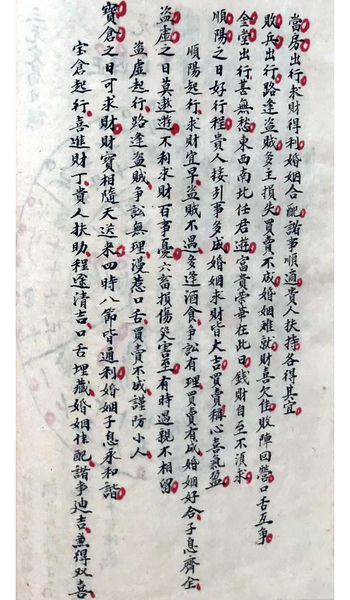 當房出行求財得利婚姻合配諸事順適貴人扶持各得其宜
敗兵出行路逢盜賊多主損失買賣不成婚姻難就財喜欠佳敗陣回營口舌互爭
金堂出行甚無愁東西南北任君遊富貴榮華在此日錢財自至不須求
順陽之日好行程貴人接引事多成婚姻求財皆大吉買賣稱心喜氣盈
順陽起行求財宜早盜賊不遇多逢酒食爭訟有理買賣有成婚姻好合子息齊全
盜虛之日莫遨遊不利求財百事憂六畜損傷災害至有時遇親不相留
盜虛起行路逢盜賊爭訟無理漫惹口舌買賣不成謹防小人
寶倉之日可求財財寶相隨天送來四時八節皆通利婚姻子息永和諧
宝倉起行喜進財丁貴人扶助程途清吉口舌埋藏婚姻佳配諸事迪吉兼得双喜